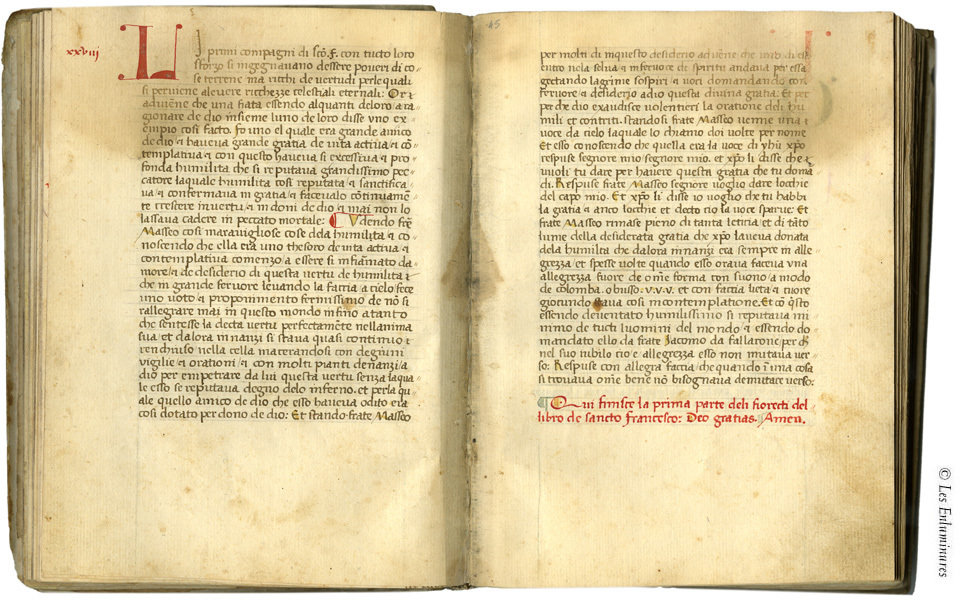 xxviij
LI primi compagni di sc̄o. f. con tucto loro
sforzo si ingegnavano dessere poveri di co-
se terrene ma ricchi de vertudi per le quali
si perviene alevere ricchezze celestiali eternali: Or
adviēne che una fiata essendo alquanti deloro a ra-
gionare de dio insieme luno de loro disse uno ex-
empio cosi facto. Fo uno el quale era grande amico
de dio & haveva grande gratia de vita activa & cō-
templativa & con questo haveva si excessiva & pro-
fonda humilita che si reputava grandissimo pec-
catore laquale humilita cosi reputata & sanctifica-
va & confermava in gratia & facevalo cōtinuamē-
te crescere invertu & in doni de dio & mai non lo
lassava cadere in peccato mortale: ¶ Vdendo frē
Masseo cosi maravigliose cose dela humilita & co-
noscendo che ella era uno thesoro de vita activa &
contemplativa comenzo a essere si infiāmato da
more & de desiderio di questa vertu de humilita &
che in grande fervore levando la faccia a cielo fece
uno voto & proponimento fermissimo de nō si
rallegrare mai in questo mondo infino atanto
che sentesse la decta vertu perfectamēte nellanima
sua et dalora innanzi si stava quasi continuo &
renchiuso nella cella macerandosi con degiuni
vigilie & orationi & con molti pianti denanzi a
dio per empetrare da lui questa vertu senza laqua-
le esso se reputava degno delo inferno. et perla qua
le quello amico de dio che esso haveva odito era
cosi dotato per dono de dio: Et stando frate Masseo
45
per molti di inquesto desiderio adviēne che uno di es-
entro nela selva & infervore di spiritu andava per essa
gectando lagrime sospiri & voci domandando con
fervore & desiderio adio questa divina gratia. Et per
per che dio exaudisce volentieri la oratione deli hu-
mili et contriti. stando si frate Masseo venne una &
voce da cielo laquale lo chiamo doi volte per nome
Et esso conoscendo che quella era la voce di yhū xp̄o
respuse segnore mio segnore mio. et xp̄o li disse che &
vuoli tu dare per havere questa gratia che tu domā
di. Respuse frate Masseo segnore voglio dare locchie
del capo mio. Et xp̄o li disse io voglio che tu habbi
la gratia & anco locchie et decto cio la voce sparve. Et
frate Masseo rimase pieno di tanta letitia et di tāto
lume della desiderata gratia che xp̄o laveva donata
dela humilta che dalora innanzi era sempre in alle
grezza et spesse volte quando esso orava faceva una
allegrezza fuore de onīe forma con suono a modo
de colomba. obtuso .v.v.v. et con faccia lieta & cuore
giorundo stava cosi incontemplatione. Et cō q̄sto
essendo deventato humilissimo si reputava mi
nimo de tucti luomini del mondo & essendo do
mandato ello da frate Jacomo da fallarone per ch̄
nel suo iubilo cio e allegrezza esso non mutava ver-
so: Respuse con allegra faccia che quando ī una cosa
si trovava om̄e bene nō bisognava demutare verso:
¶ Qui finisce la prima parte deli fiorecti del
libro de sancto francesco: Deo gratias. Amen.
© Les Enluminures